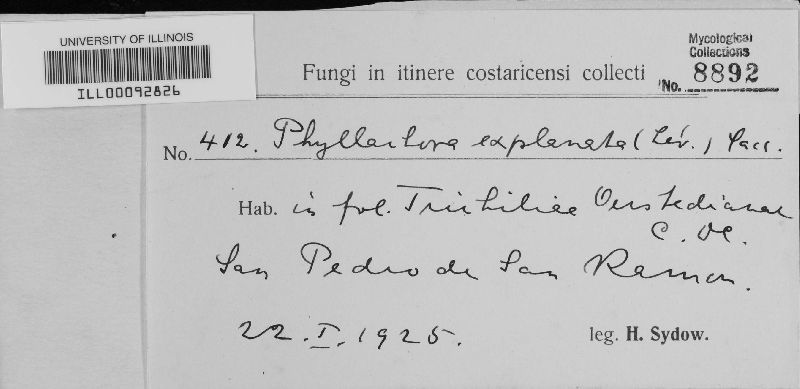 UNIVERSITY OF ILLINOIS
ILL00092826
Mycological
Collections
No. 8892
Fungi in itinere costaricensi collecti
No. 412. Phyllachora explanata (Lév.) Sacc.
Hab. in fol. Trichiliae Oerstedianae
C. DC.
San Pedro de San Ramon.
22.I.1925.
leg. H. Sydow.